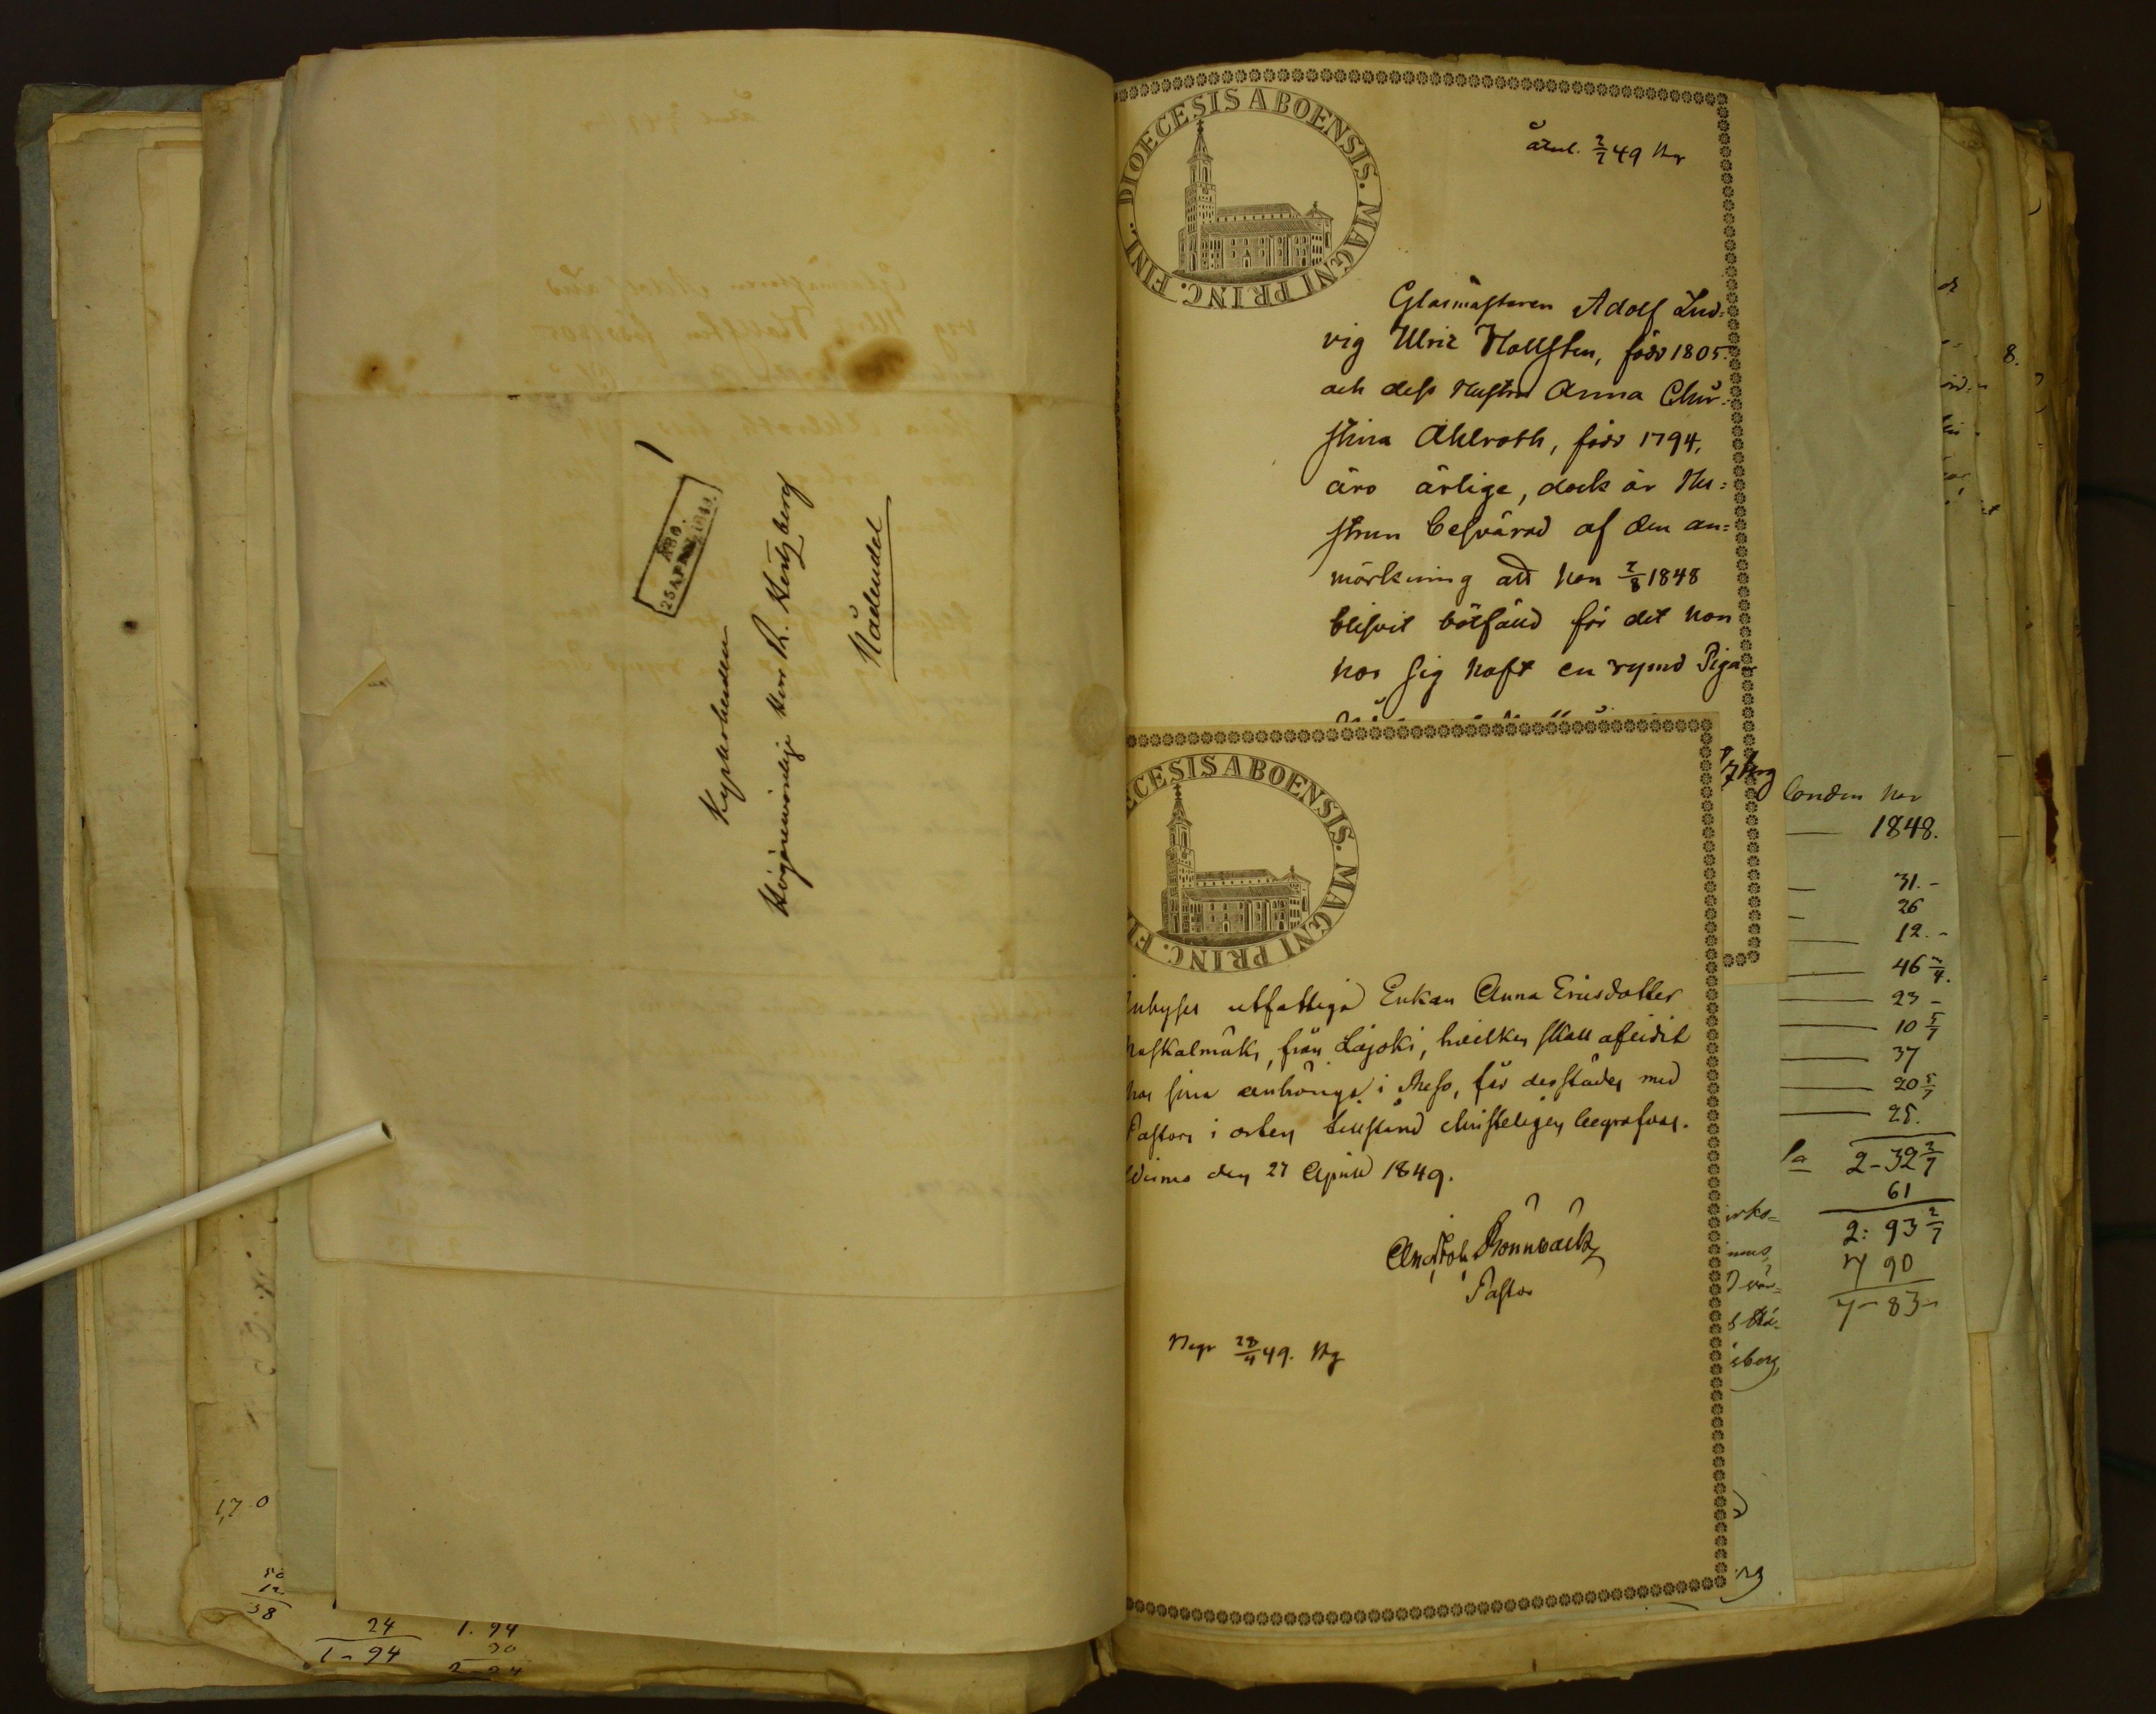 ÅBO.
25 APR. 184
Kyrkoherden
Högärevördige Herr R. Hertzberg
Nådendal
DIOECESIS ABOENSIS. MAGNI PRINC. FINL.
återl. 2/7 49 Hg
Glasmästaren Adolf Lud=
vig Ulric Hallsten, född 1805
och dess Hustru Anna Chri=
stina Ahlroth, född 1794,
äro ärlige, dock är Hu=
strun besvärad af den an=
märkning att hon 2/8 1848
blifvit bötfälld för det hon
hos sig haft en rymd Piga
ECESIS ABOENSIS. MAGNI PRINC. FI
Inhyses utfattiga Enkan Anna Ericsdotter
från Lajoki, hvilken skall aflidit
hos sina anhöriga i Meso, får derstädes med
Pastors i orten tillstånd christeligen begrafvas.
Virmo den 27 April 1849.
Rönnbäck
Pastor
Regr 28/4 49. Hg
landen har
1848.
31. -
26
12. -
46 2/4.
23 -
10 5/7
37
20 5/7
25.
Sa 2-32 2/7
61
2: 93 2/7
4 90
7-83-
8.
17 0
50
12
38
24
1-94
1. 94
30
2-24